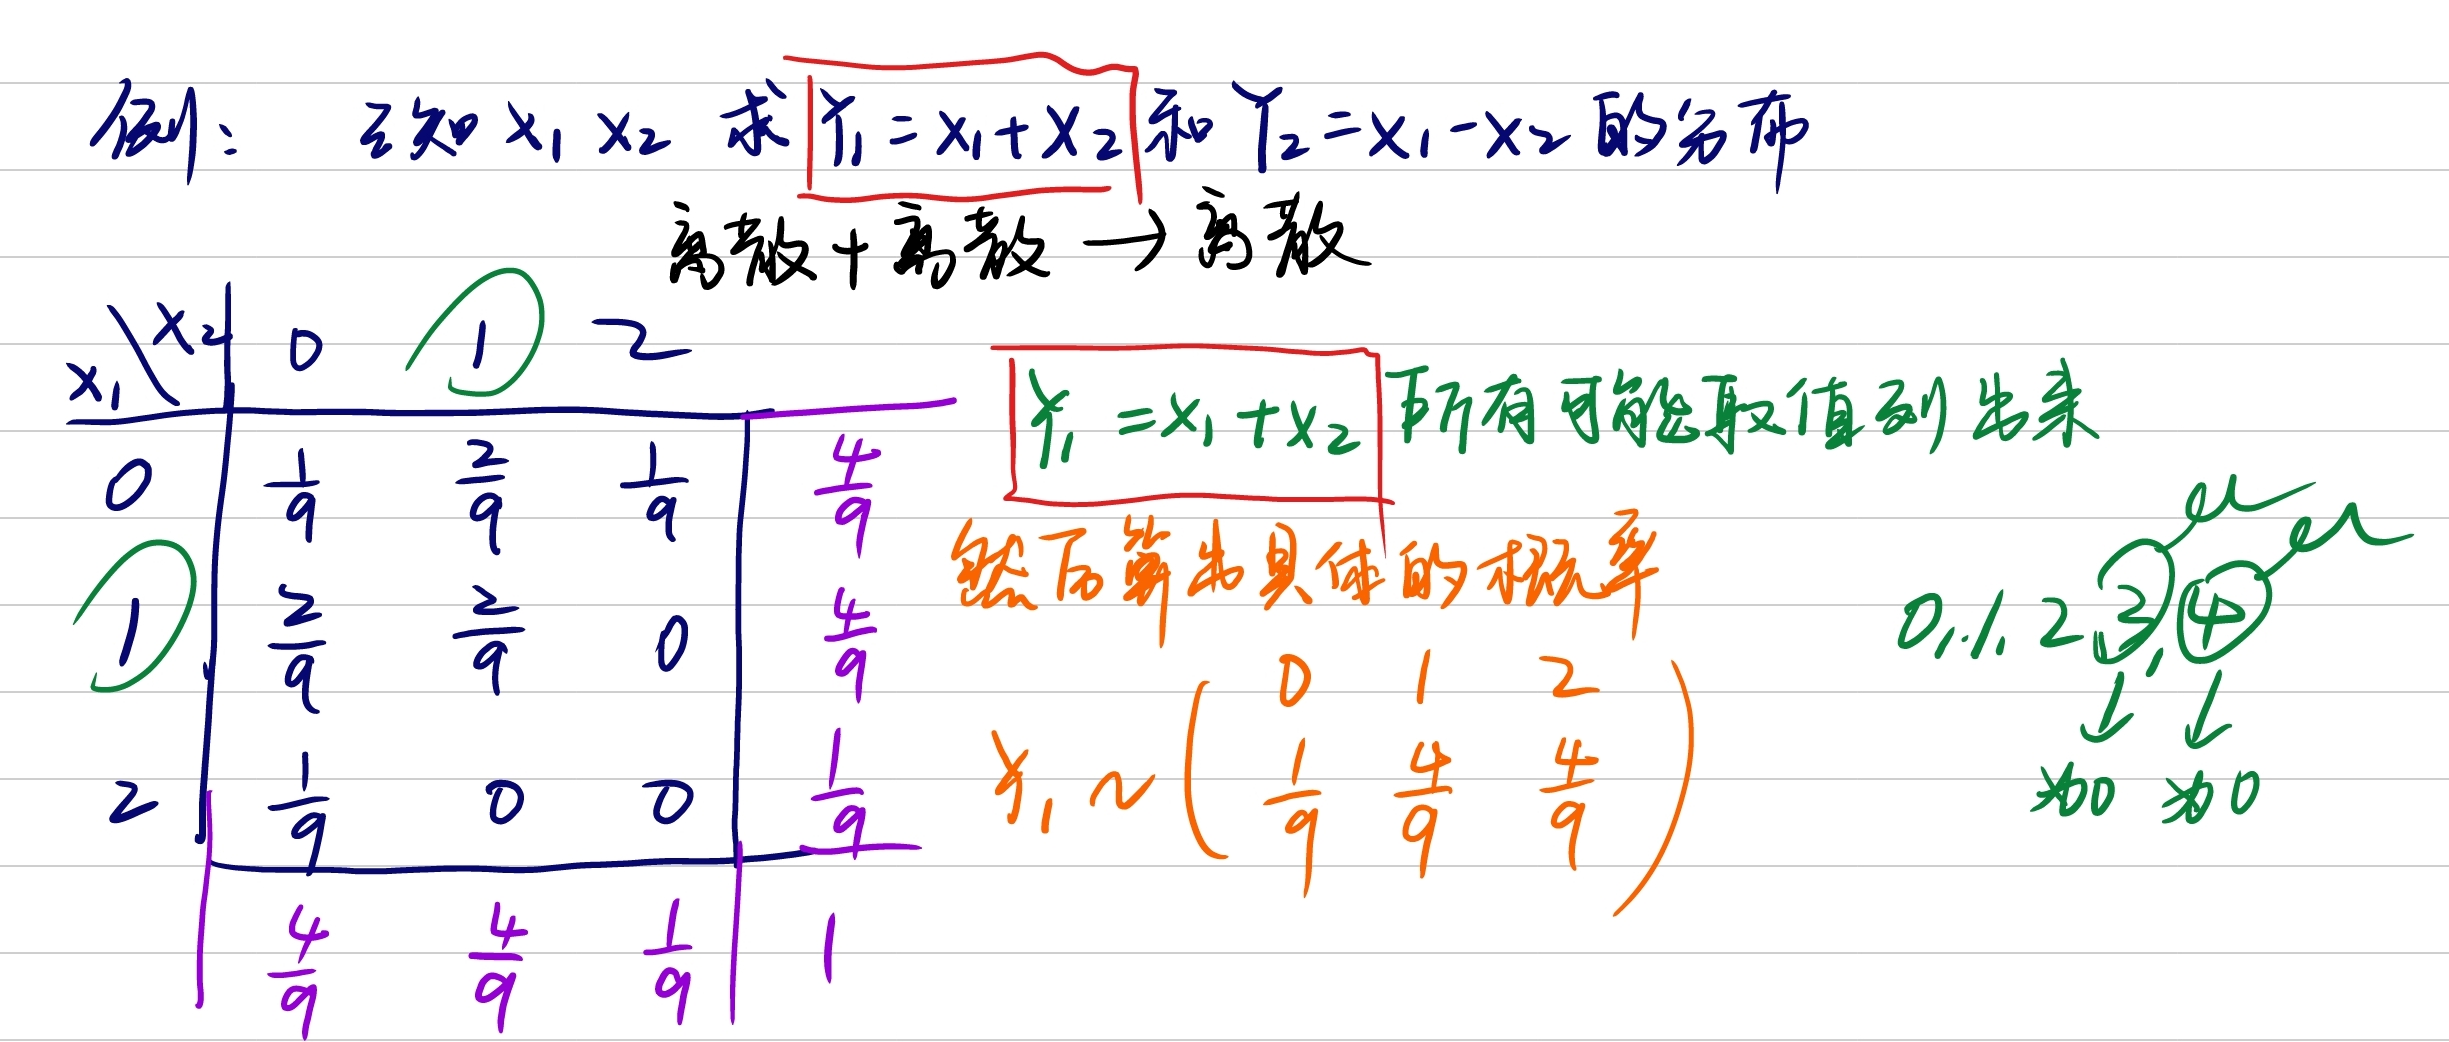 例： 已知 X₁ X₂ 求 Y₁ = X₁ + X₂ 和 Y₂ = X₁ - X₂ 的分布
离散 + 离散 → 离散
X₁ \ X₂ 0 1 2
0 1/9 2/9 1/9 4/9
1 2/9 2/9 0 4/9
2 1/9 0 0 1/9
4/9 4/9 1/9 1
Y₁ = X₁ + X₂ 所有可能取值列出来
0, 1, 2, 3, 4
为0 为0
然后算出具体的概率
Y₁ ~ ( 0 1 2
1/9 4/9 4/9 )